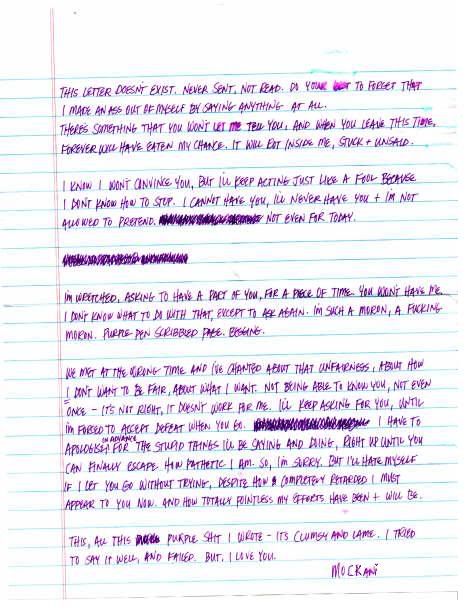 THIS LETTER DOESN'T EXIST. NEVER SENT, NOT READ. DO YOUR BEST TO FORGET THAT
I MADE AN ASS OUT OF MYSELF BY SAYING ANYTHING AT ALL.
THERE'S SOMETHING THAT YOU WON'T LET ME TELL YOU, AND WHEN YOU LEAVE THIS TIME,
FOREVER WILL HAVE EATEN MY CHANCE. IT WILL ROT INSIDE ME, STUCK + UNSAID.
I KNOW I WON'T CONVINCE YOU, BUT I'LL KEEP ACTING JUST LIKE A FOOL BECAUSE
I DON'T KNOW HOW TO STOP. I CANNOT HAVE YOU, I'LL NEVER HAVE YOU + I'M NOT
ALLOWED TO PRETEND. NOT EVEN FOR TODAY.
I'M WRETCHED, ASKING TO HAVE A PART OF YOU, FOR A PIECE OF TIME. YOU WON'T HAVE ME.
I DON'T KNOW WHAT TO DO WITH THAT, EXCEPT TO ASK AGAIN. I'M SUCH A MORON, A FUCKING
MORON. PURPLE PEN SCRIBBLED PAGE. BEGGING.
WE MET AT THE WRONG TIME AND I'VE CHANTED ABOUT THAT UNFAIRNESS, ABOUT HOW
I DON'T WANT TO BE FAIR, ABOUT WHAT I WANT. NOT BEING ABLE TO KNOW YOU, NOT EVEN
ONCE - IT'S NOT RIGHT, IT DOESN'T WORK FOR ME. I'LL KEEP ASKING FOR YOU, UNTIL
I'M FORCED TO ACCEPT DEFEAT WHEN YOU GO. I HAVE TO
APOLOGISE IN ADVANCE FOR THE STUPID THINGS I'LL BE SAYING AND DOING, RIGHT UP UNTIL YOU
CAN FINALLY ESCAPE. HOW PATHETIC I AM. SO, I'M SORRY. BUT I'LL HATE MYSELF
IF I LET YOU GO WITHOUT TRYING, DESPITE HOW COMPLETELY RETARDED I MUST
APPEAR TO YOU NOW. AND HOW TOTALLY POINTLESS MY EFFORTS HAVE BEEN + WILL BE.
THIS, ALL THIS PURPLE SHIT I WROTE - IT'S CLUMSY AND LAME. I TRIED
TO SAY IT WELL, AND FAILED. BUT, I LOVE YOU.
MOCKANI